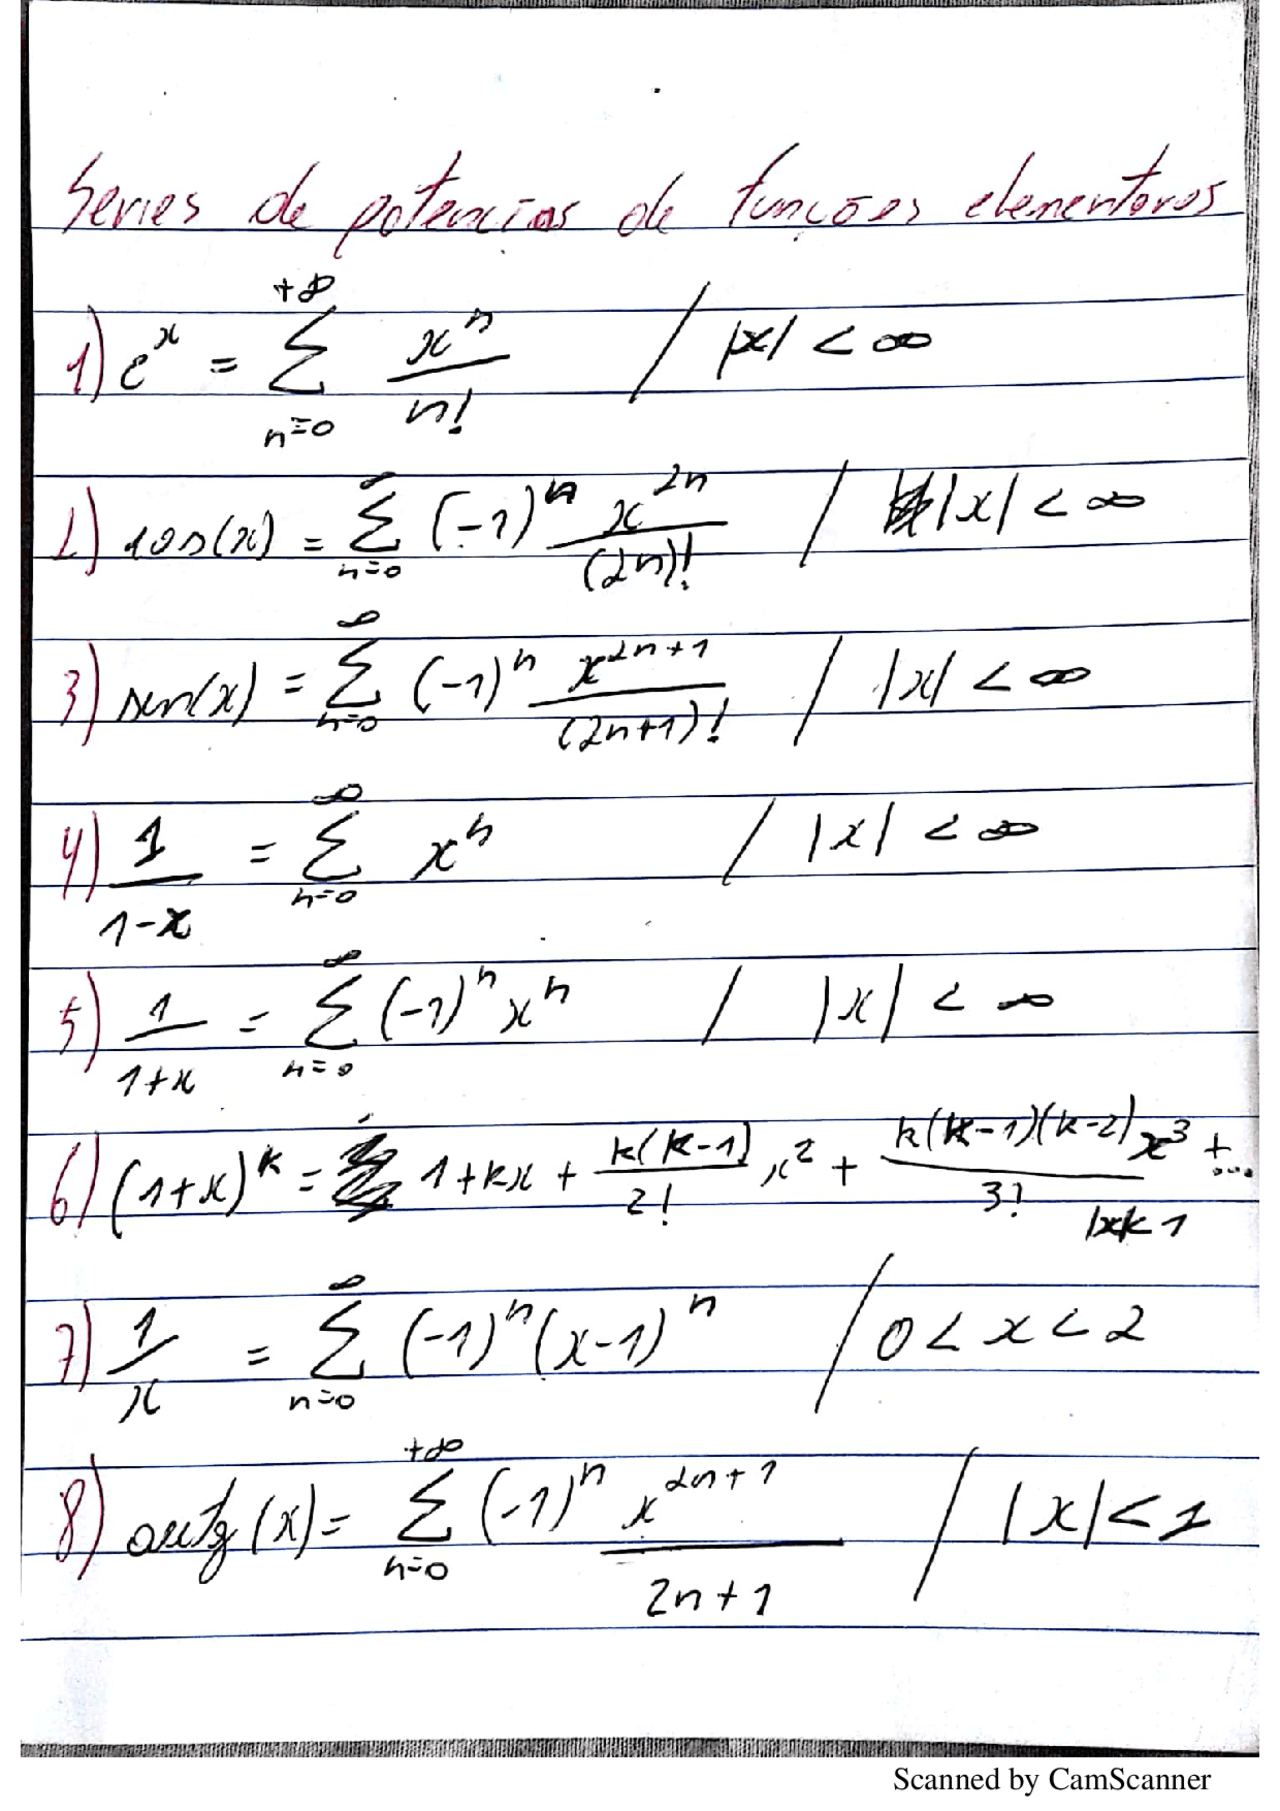 Series de potencias de funções elementares
1) e^x = ∑_{n=0}^{+∞} x^n / n! / |x| < ∞
2) cos(x) = ∑_{n=0}^{∞} (-1)^n x^{2n} / (2n)! / |x| < ∞
3) sen(x) = ∑_{n=0}^{∞} (-1)^n x^{2n+1} / (2n+1)! / |x| < ∞
4) 1 / 1-x = ∑_{n=0}^{∞} x^n / |x| < ∞
5) 1 / 1+x = ∑_{n=0}^{∞} (-1)^n x^n / |x| < ∞
6) (1+x)^k = 1+kx + k(k-1) / 2! x^2 + k(k-1)(k-2) / 3! x^3 + ... |x|<1
7) 1 / x = ∑_{n=0}^{∞} (-1)^n (x-1)^n / 0 < x < 2
8) arctg(x) = ∑_{n=0}^{+∞} (-1)^n x^{2n+1} / 2n+1 / |x| < 1
Scanned by CamScanner